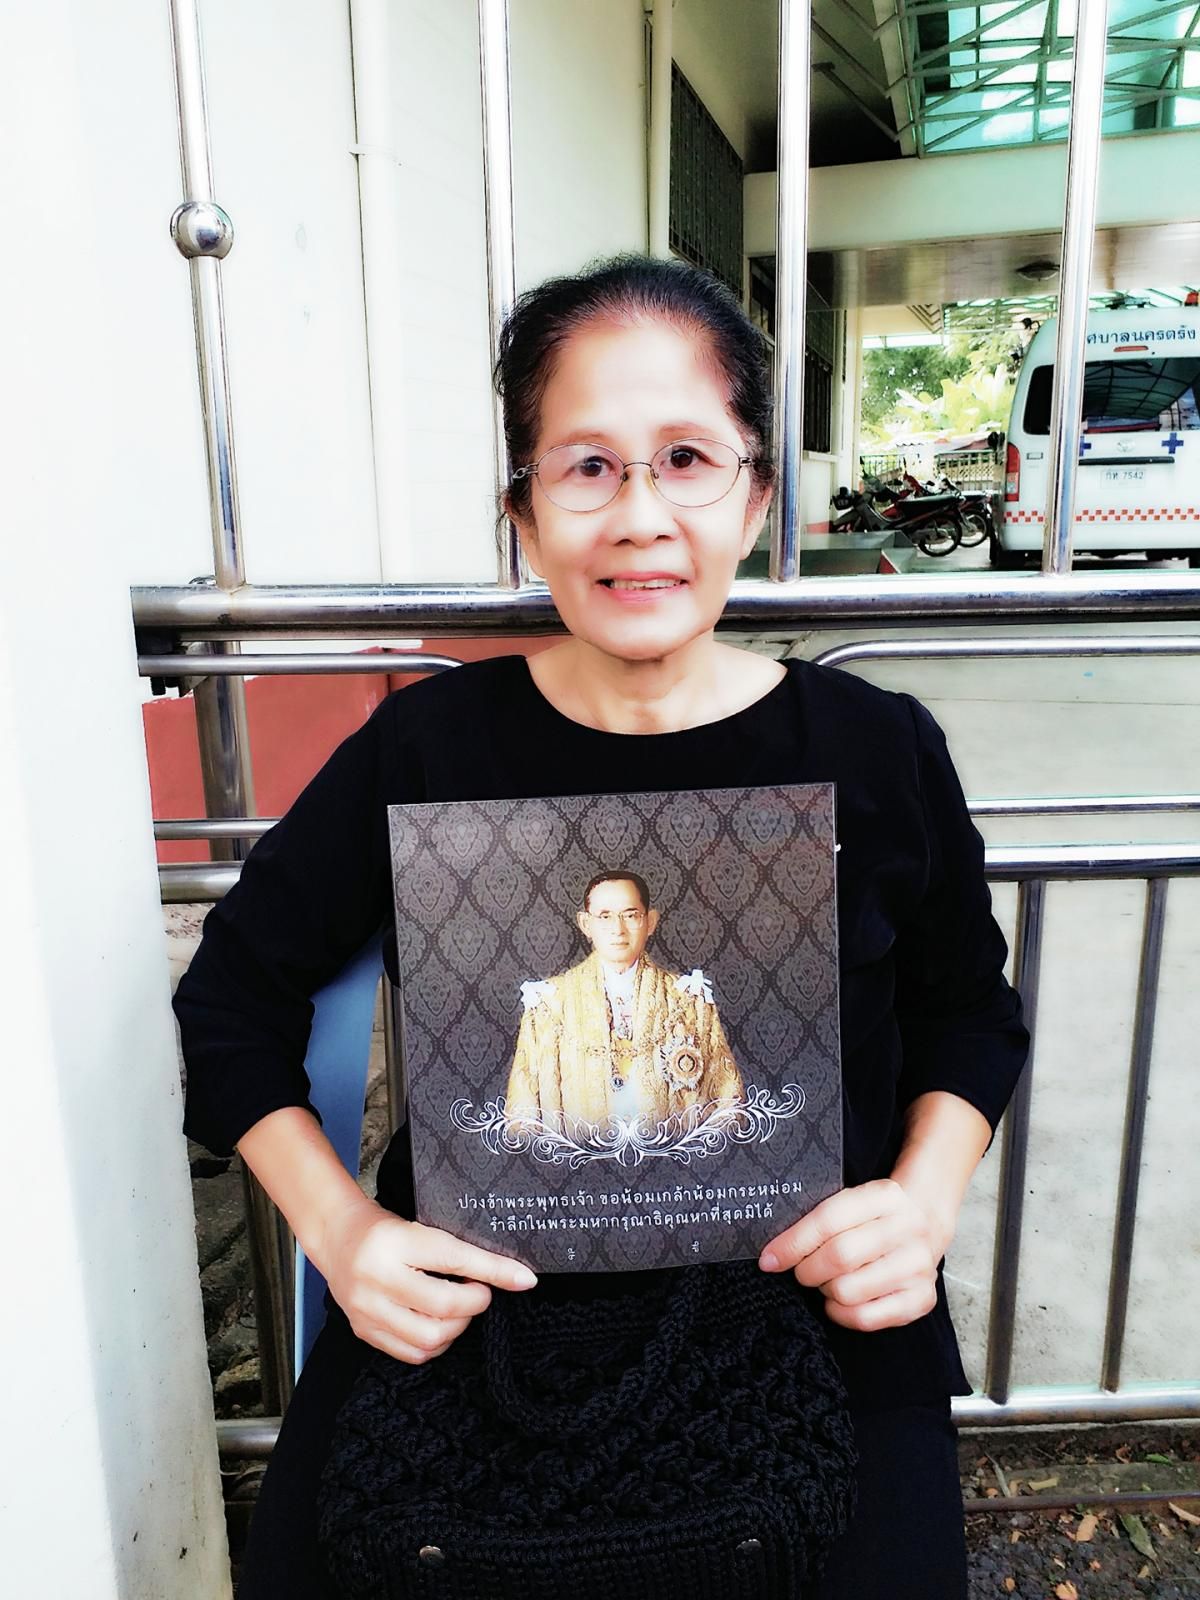 ศบาลนครตรัง
กท 7542
ปวงข้าพระพุทธเจ้า ขอน้อมเกล้าน้อมกระหม่อม
รำลึกในพระมหากรุณาธิคุณหาที่สุดมิได้